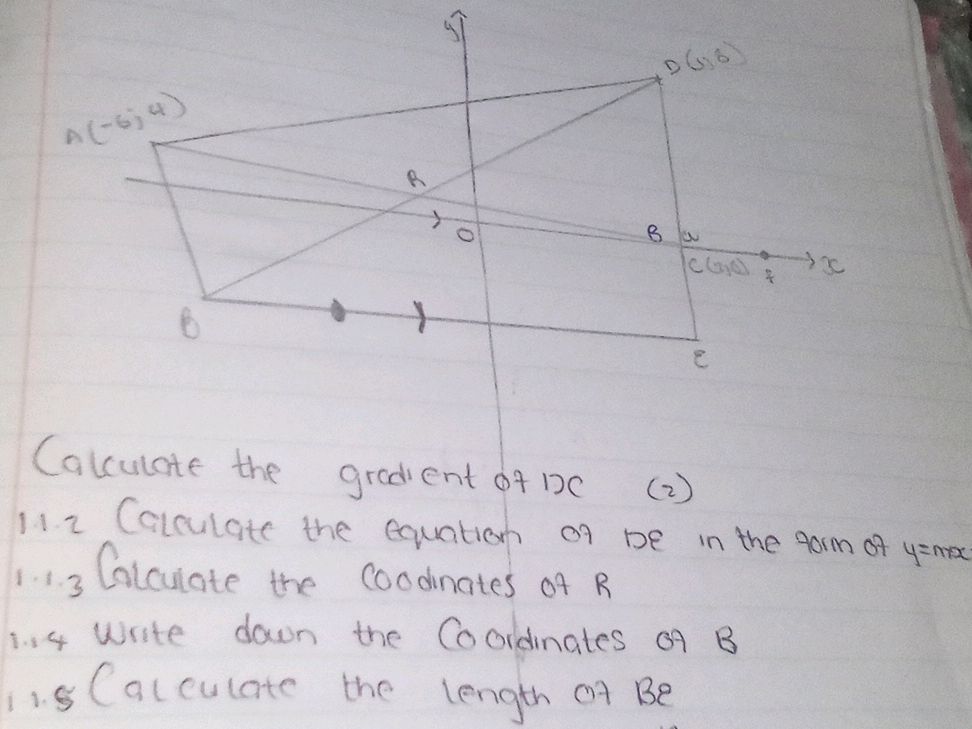 y
A(-6;4)
R
O
B
x
B
E
Calculate the gradient of DC (2)
1.1.2 Calculate the equation of DE in the form of y=mx
1.1.3 Calculate the coodinates of R
1.1.4 Write down the Coordinates of B
1.1.5 Calculate the length of BE